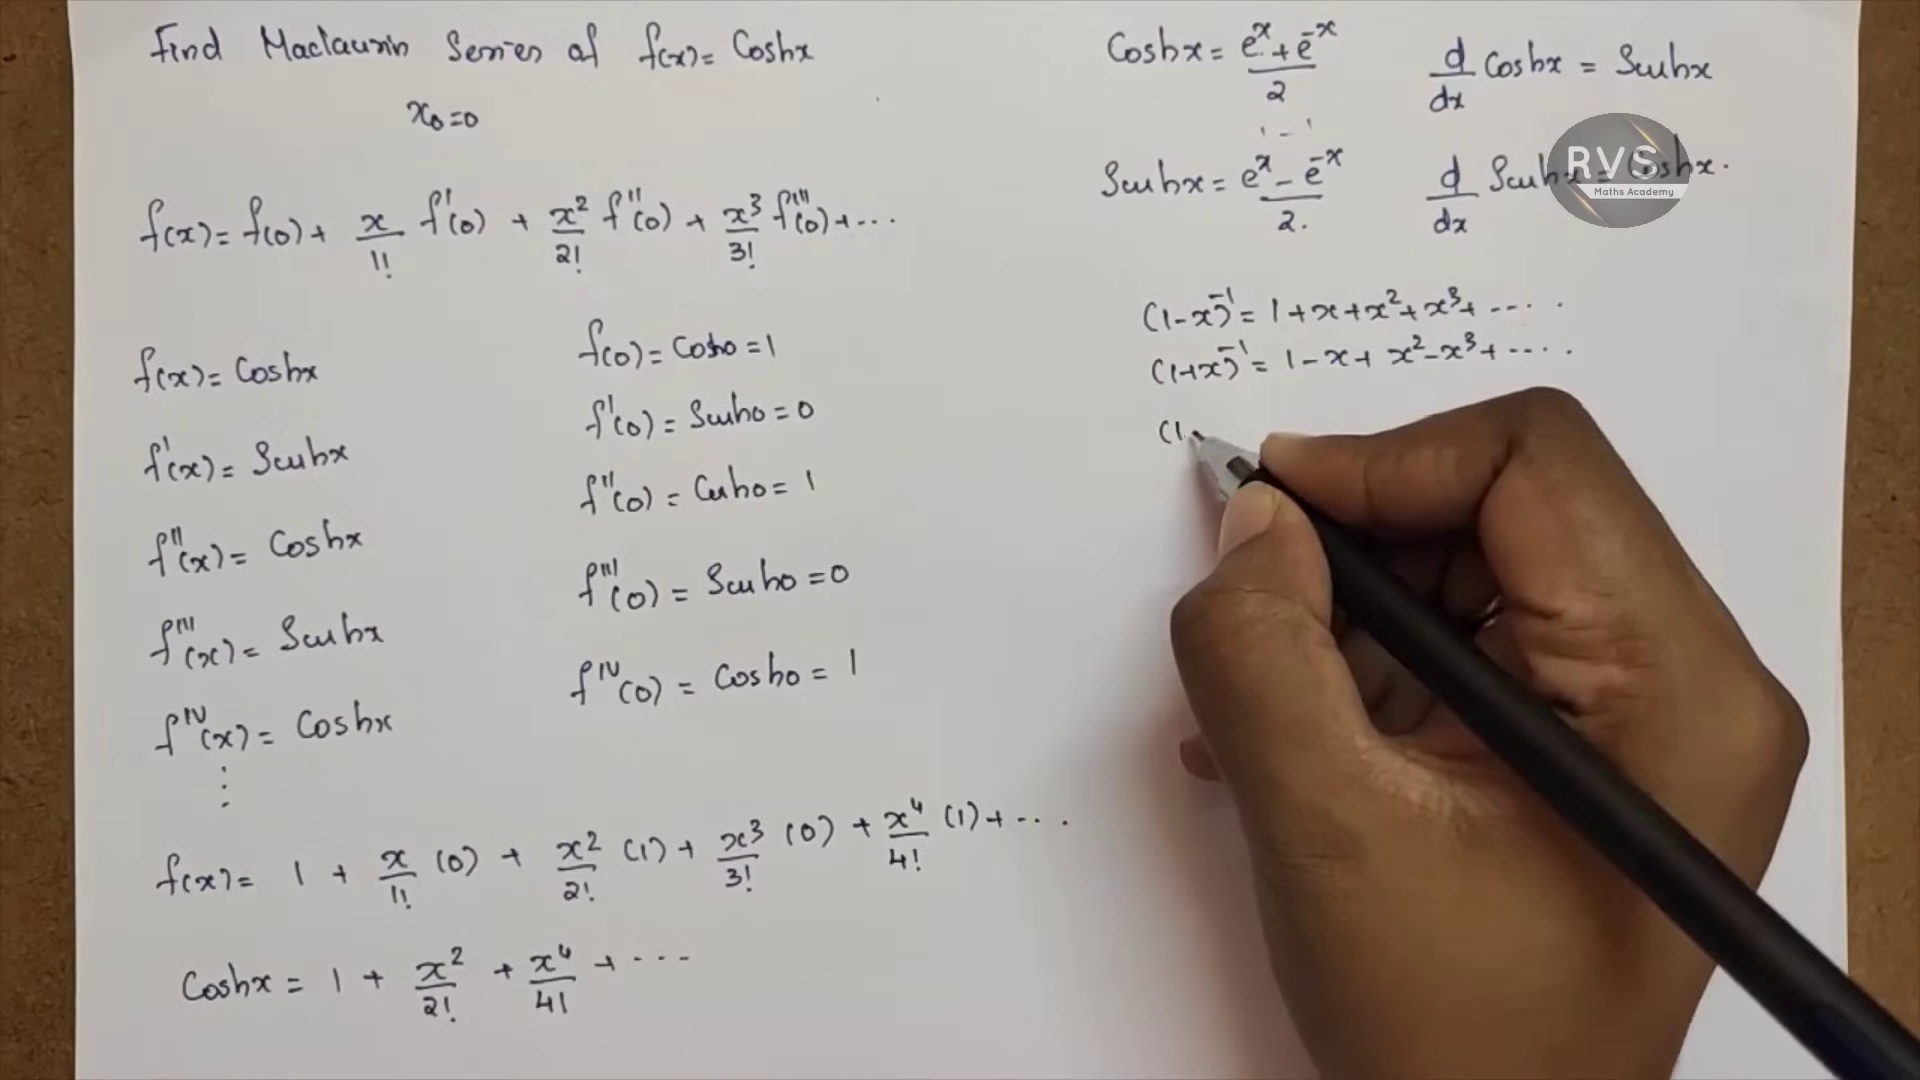 Find Maclaurin Series of f(x)= Coshx
x₀=0
f(x)= f(0)+ x/1! f'(0) + x²/2! f''(0) + x³/3! f'''(0)+ ...
f(x)= Coshx
f'(x)= Sinhx
f''(x)= Coshx
f'''(x)= Sinhx
fᴵⱽ(x)= Coshx
⋮
f(0)= Cosh0 = 1
f'(0)= Sinh0 = 0
f''(0) = Cosh0 = 1
f'''(0) = Sinh0 = 0
fᴵⱽ(0) = Cosh0 = 1
f(x)= 1 + x/1! (0) + x²/2! (1) + x³/3! (0) + x⁴/4! (1) + ...
Coshx = 1 + x²/2! + x⁴/4! + ...
Coshx = eˣ + e⁻ˣ / 2
d/dx Coshx = Sinhx
Sinhx = eˣ - e⁻ˣ / 2.
d/dx Sinhx = Coshx.
(1-x)⁻¹ = 1+x+x²+x³+ ....
(1+x)⁻¹ = 1-x+x²-x³+ ....
(1-
RVS
Maths Academy